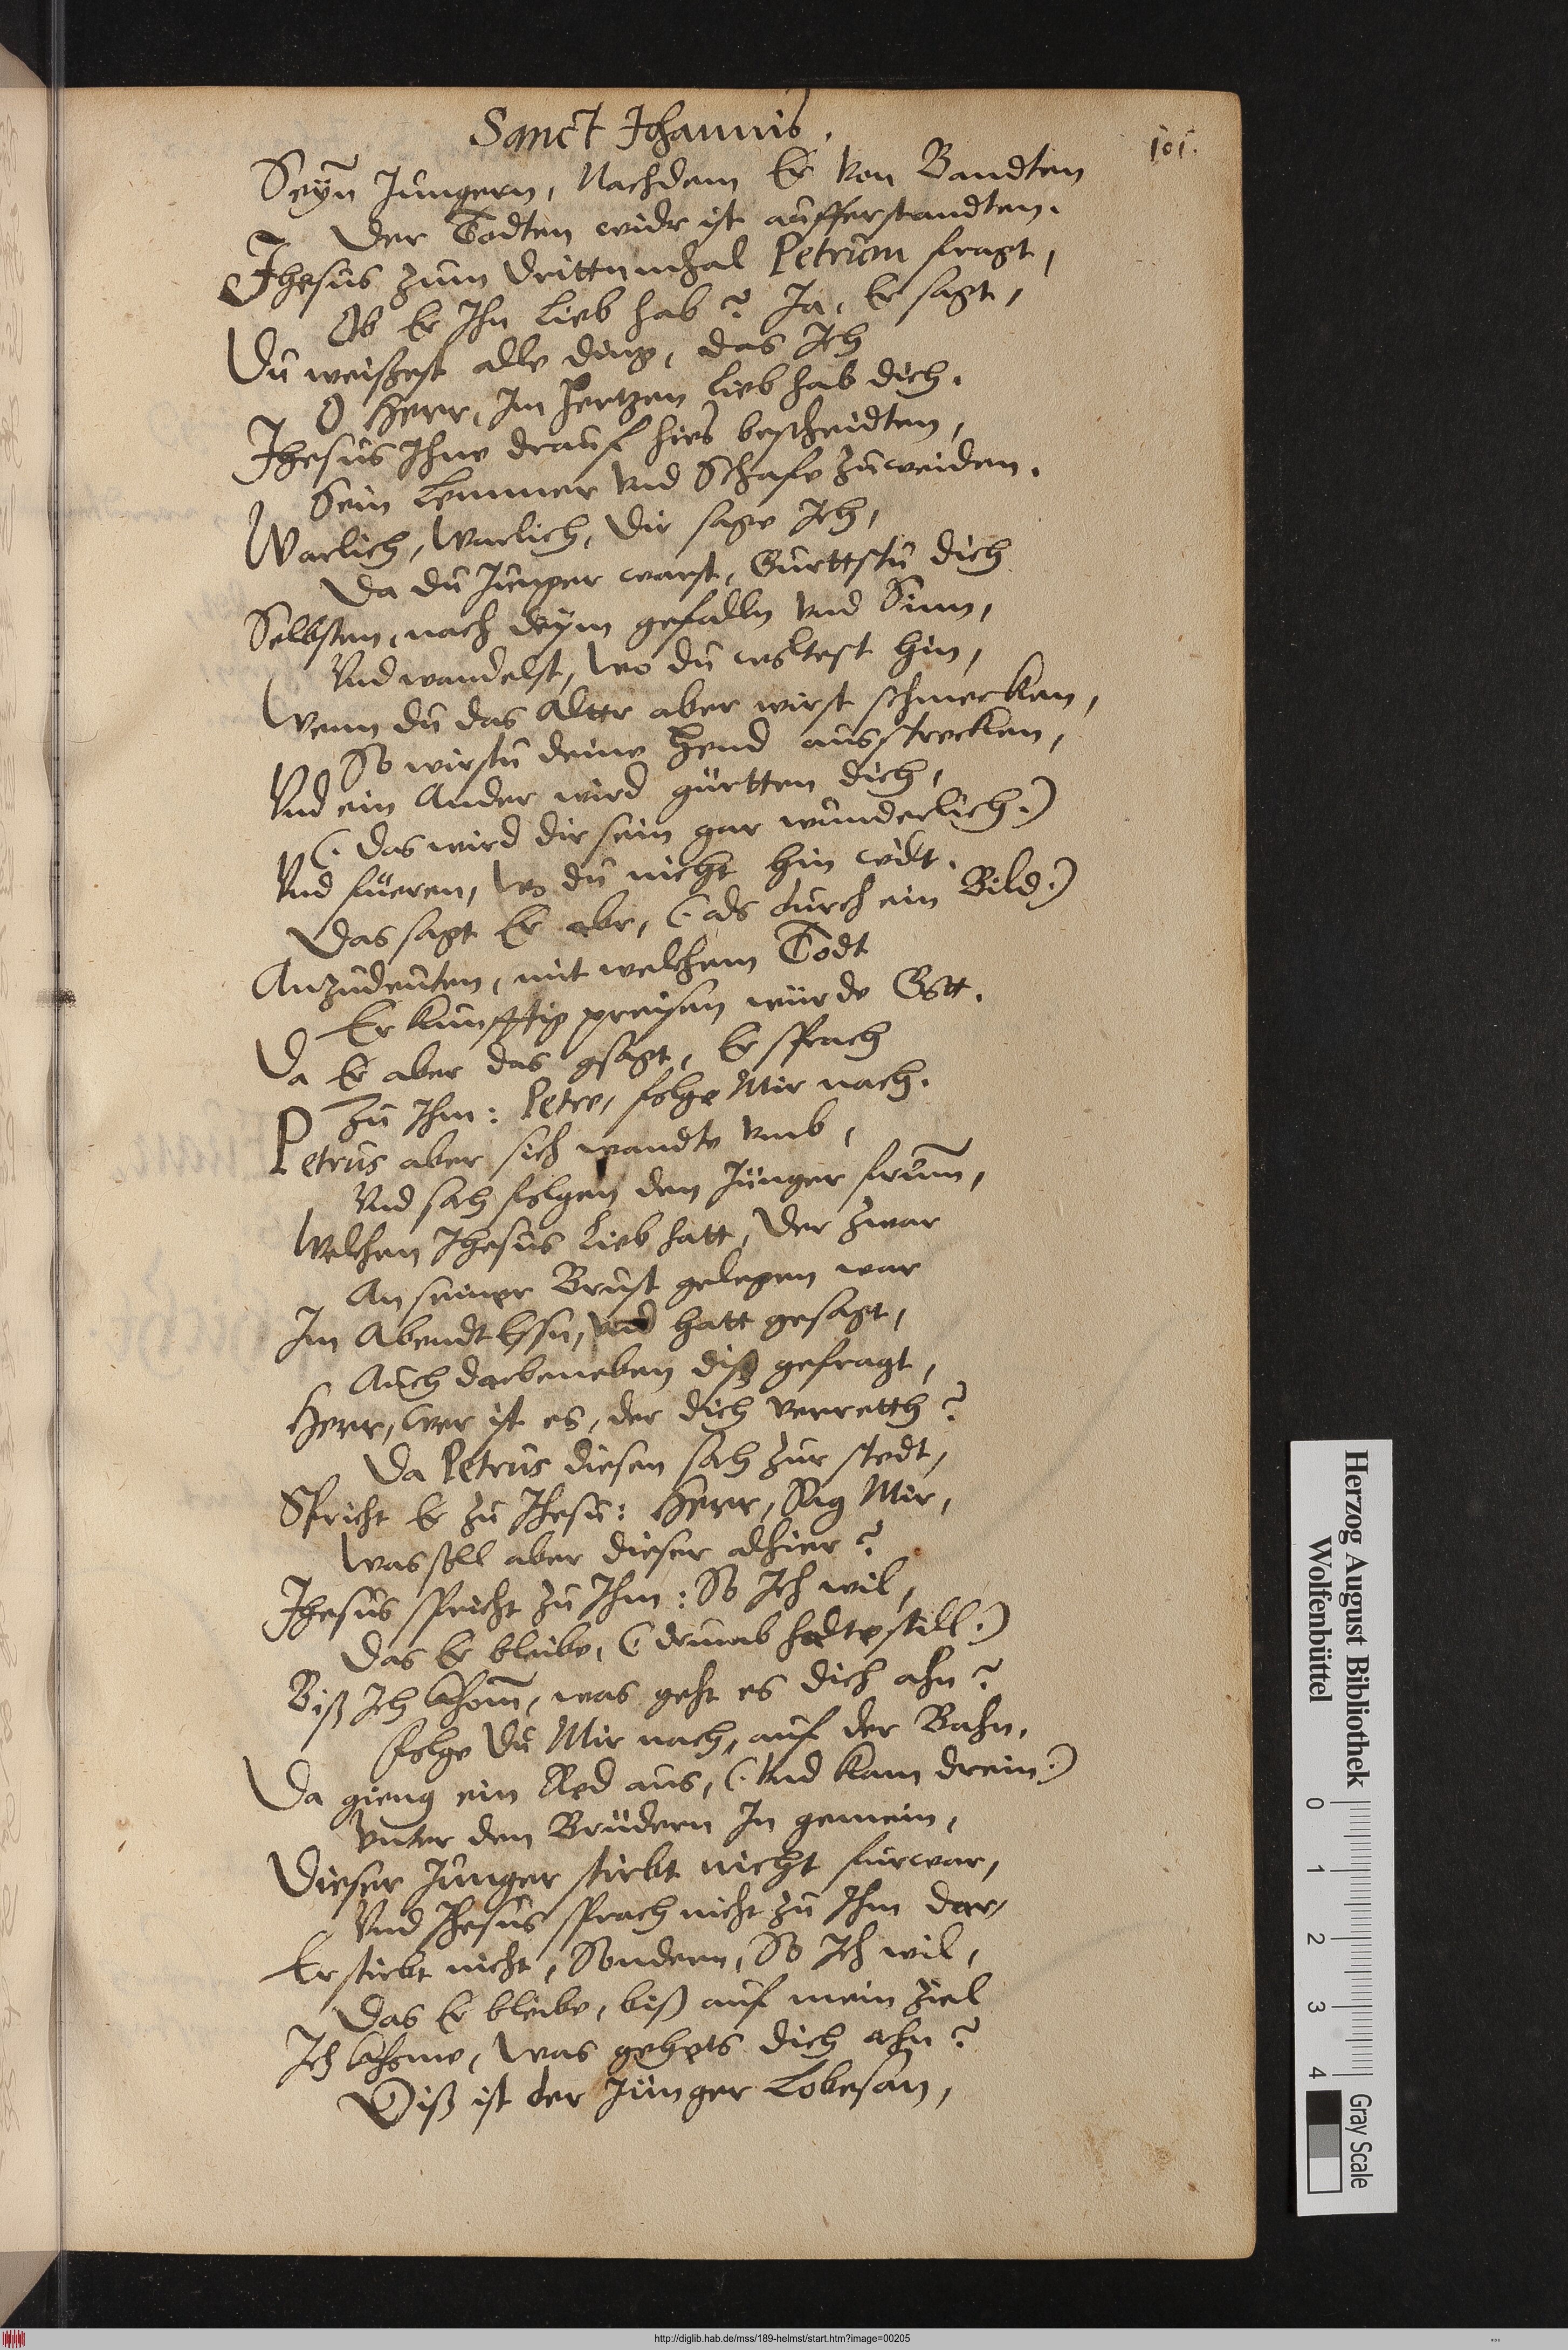 Sanct Johannis.
101.
Seyn̄ Jüngern, Nachdem Er von Bandten
Der Todten widr ist aufferstandten.
Jhesus zum Drittnmhal Petrum fragt,
Ob Er Ihn Lieb hab? Ja, Er sagt,
Du weißest alle ding, das Ich
O Herr, Im Hertzen lieb hab dich.
Jhesus Ihne drauf hies bescheidten,
Sein Lemmer vnd Schafe zu weiden.
Warlich, Warlich, Dir sage Ich,
Da du Junger warst, Gurttstu dich
Selbsten, nach deym gefalln vnd Sinn,
Vnd wandelst, Wo du woltest hin,
Wenn du das Alttr aber wirst schmecken,
So wirstu deine Hend ausstrecken,
Vnd ein Ander wird gürtten dich,
(Das wird dir sein gar wunderlich.)
Vnd füeren, Wo du nicht hin wilt.
Das sagt Er abr, (als durch ein Bild.)
Anzudeuten, mit welchem Todt
Er kunfftig preisen würde Gott.
Da Er aber das gsagt, Er sprach
Zu Ihm: Petre, folge Mir nach.
Petrus aber sich wandte vmb,
Vnd sah folgen den Jünger frum̄,
Welchen Jhesus Lieb hatt, Der zwar
An seiner Brust gelegen war
Im Abendt Essn, vnd hatt gesagt,
Auch darbeneben diß gefragt,
Herr, Wer ist es, der dich verretth?
Da Petrus diesen sah zur stedt,
Spricht Er zu Jhesu: Herr, Sag Mir,
Was soll aber dieser alhier?
Jhesus spricht zu Ihm: So Ich wil,
Das Er bleibe, (drumb halte still.)
Biß Ich khom̄, was geht es dich ahn?
Folge Du Mir nach, auf der Bahn.
Da gieng ein Red aus, (Vnd kam drein.)
Vnter den Brüdern In gemein,
Dieser Junger stirbt nicht furwar,
Vnd Jhesus sprach nicht zu Ihm dar,
Er stirbt nicht, Sondern, So Ich wil,
Das Er bleibe, biß auf mein Ziel
Ich khome, Was gehets dich ahn?
Diß ist der Jünger Lobesan,
Herzog August Bibliothek
Wolfenbüttel
0 1 2 3 4
Gray Scale
http://diglib.hab.de/mss/189-helmst/start.htm?image=00205